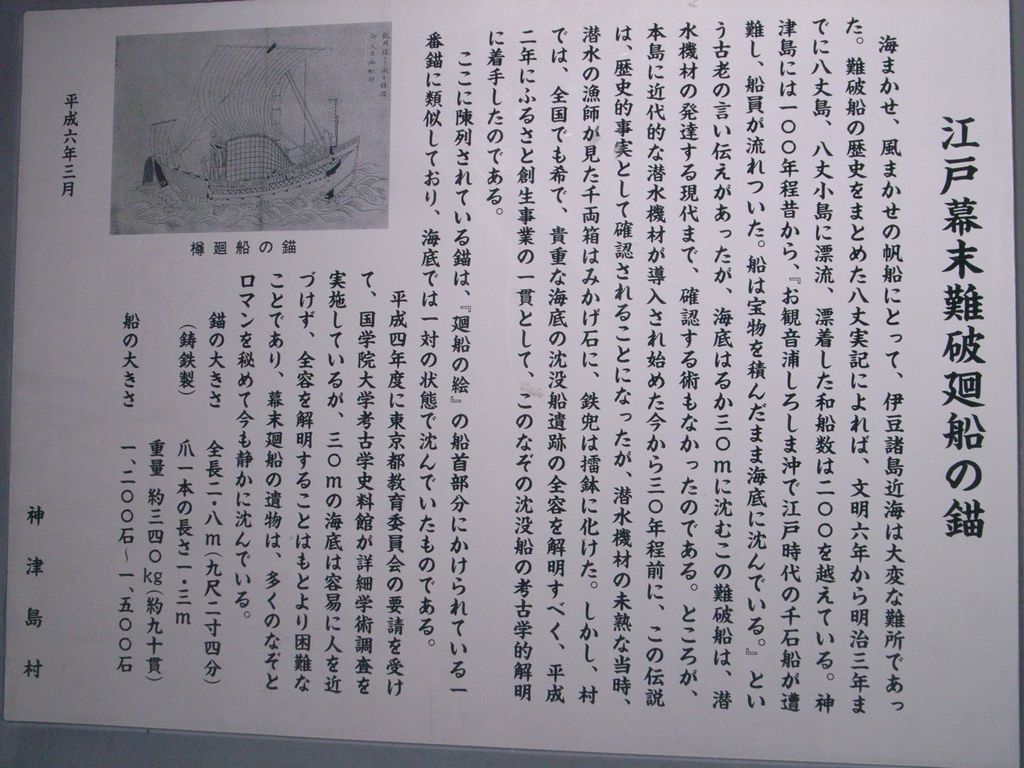 江戸幕末難破廻船の錨
海まかせ、風まかせの帆船にとって、伊豆諸島近海は大変な難所であっ
た。難破船の歴史をまとめた八丈実記によれば、文明六年から明治三年ま
でに八丈島、八丈小島に漂流、漂着した和船数は二〇〇を越えている。神
津島には一〇〇年程昔から、『お観音浦しろしま沖で江戸時代の千石船が遭
難し、船員が流れついた。船は宝物を積んだまま海底に沈んでいる。』とい
う古老の言い伝えがあったが、海底はるか三〇mに沈むこの難破船は、潜
水機材の発達する現代まで、確認する術もなかったのである。ところが、
本島に近代的な潜水機材が導入され始めた今から三〇年程前に、この伝説
は、歴史的事実として確認されることになったが、潜水機材の未熟な当時、
潜水の漁師が見た千両箱はみかげ石に、鉄兜は擂鉢に化けた。しかし、村
では、全国でも希で、貴重な海底の沈没船遺跡の全容を解明すべく、平成
二年にふるさと創生事業の一貫として、このなぞの沈没船の考古学的解明
に着手したのである。
ここに陳列されている錨は、『廻船の絵』の船首部分にかけられている一
番錨に類似しており、海底では一対の状態で沈んでいたものである。
平成四年度に東京都教育委員会の要請を受け
て、国学院大学考古学史料館が詳細学術調査を
実施しているが、三〇mの海底は容易に人を近
づけず、全容を解明することはもとより困難な
ことであり、幕末廻船の遺物は、多くのなぞと
ロマンを秘めて今も静かに沈んでいる。
錨の大きさ 全長二・八m(九尺二寸四分)
(鋳鉄製) 爪一本の長さ一・三m
重量 約三四〇kg(約九十貫)
船の大きさ 一、二〇〇石~一、五〇〇石
樽廻船の錨
平成六年三月
神津島村